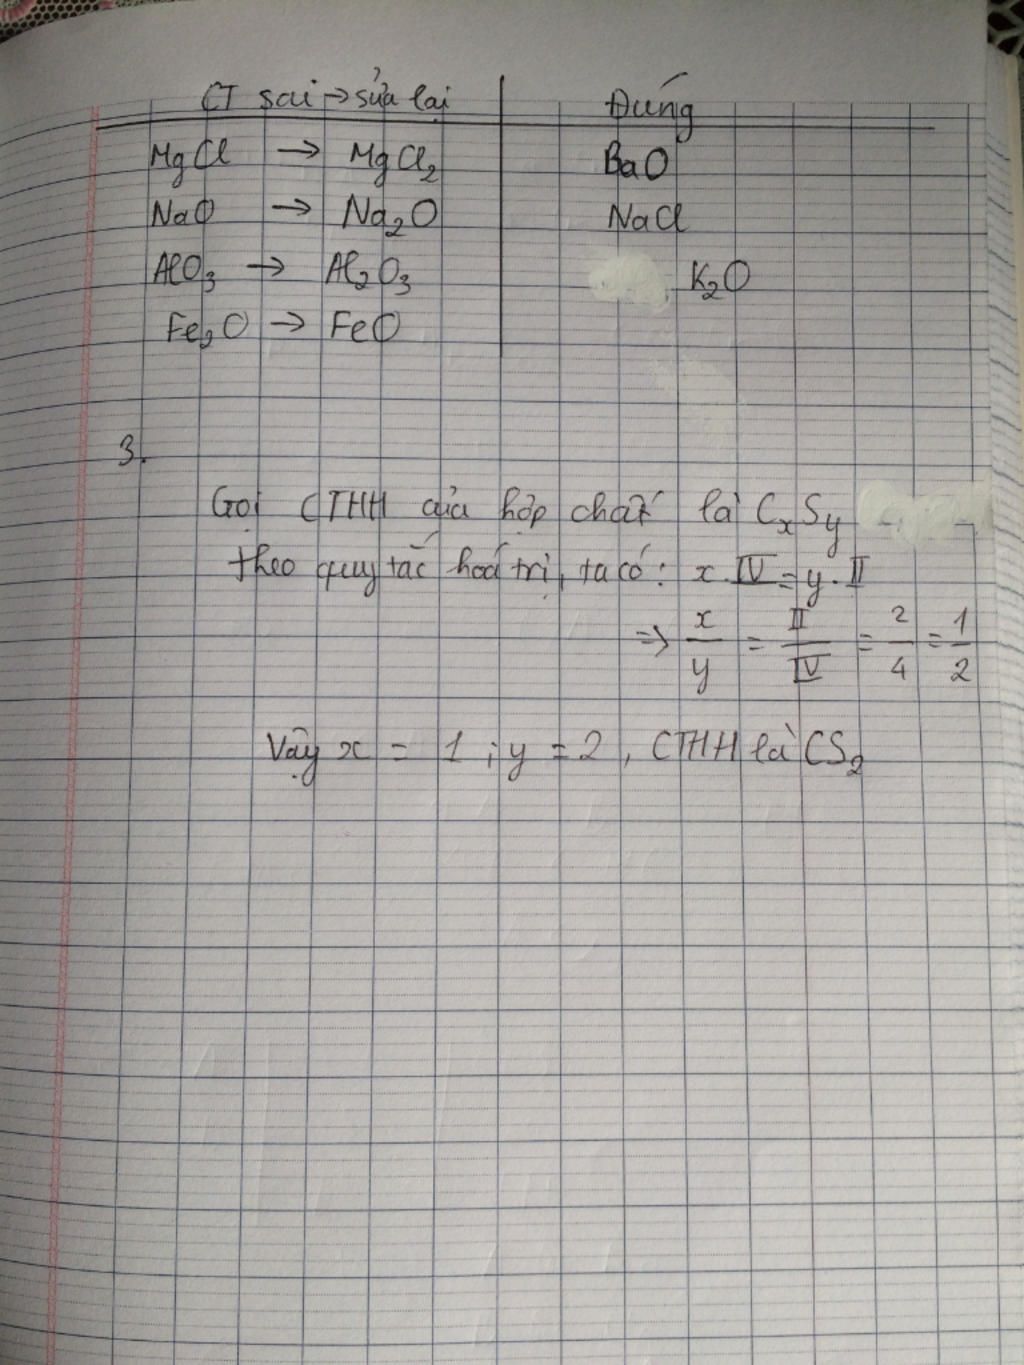 CT sai → sửa lại Đúng
MgCl → MgCl₂ BaO
NaO → Na₂O NaCl
AlO₃ → Al₂O₃ K₂O
Fe₂O → FeO
3.
Gọi CTHH của hợp chất là CₓSᵧ
theo quy tắc hoá trị, ta có: x.IV = y.II
=> x/y = II/IV = 2/4 = 1/2
Vậy x = 1 ; y = 2 , CTHH là CS₂